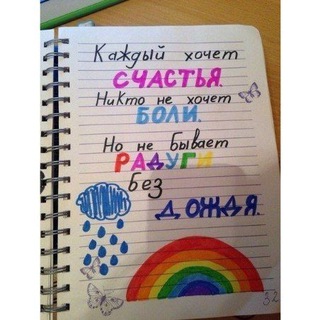 Каждый хочет
СЧАСТЬЯ.
Никто не хочет
БОЛИ.
Но не бывает
РАДУГИ
без
ДОЖДЯ.
32